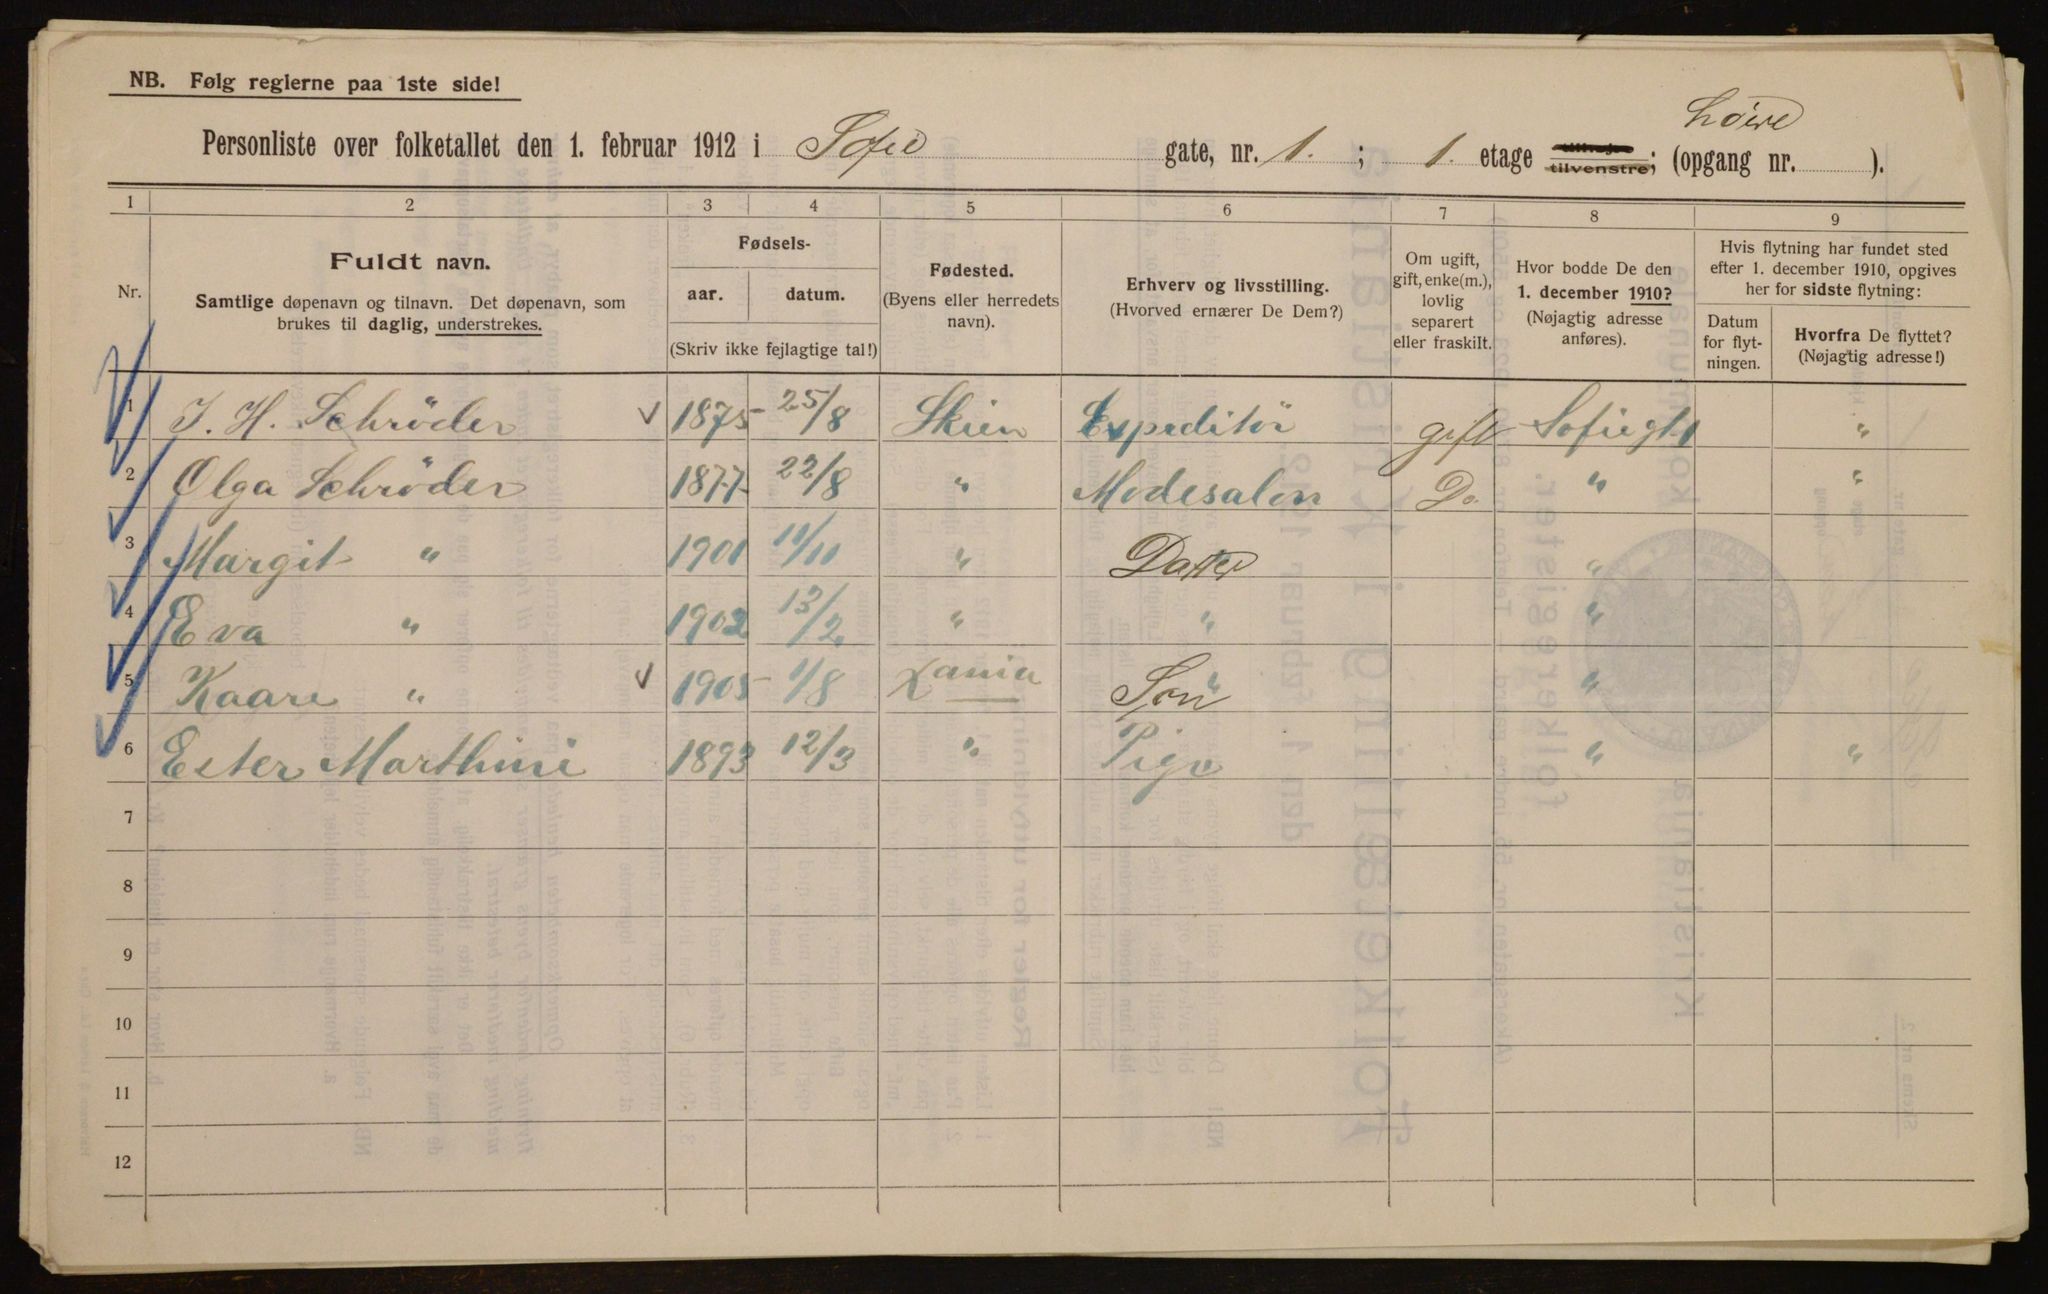 NB. Følg reglerne paa 1ste side!
Løire
Personliste over folketallet den 1. februar 1912 i Sofie gate, nr. 1. ; 1. etage tilvenstre; (opgang nr. ).
1 2 3 4 5 6 7 8 9
Nr.
Fuldt navn.
Samtlige døpenavn og tilnavn. Det døpenavn, som
brukes til daglig, understrekes.
Fødsels-
aar. datum.
(Skriv ikke fejlagtige tal!)
Fødested.
(Byens eller herredets
navn).
Erhverv og livsstilling.
(Hvorved ernærer De Dem?)
Om ugift,
gift, enke(m.),
lovlig
separert
eller fraskilt.
Hvor bodde De den
1. december 1910?
(Nøjagtig adresse
anføres).
Hvis flytning har fundet sted
efter 1. december 1910, opgives
her for sidste flytning:
Datum
for flyt-
ningen.
Hvorfra De flyttet?
(Nøjagtig adresse!)
1 J. H. Schröder 1875 25/8 Skien Expeditör gift Sofiegt 1 "
2 Olga Schröder 1877 22/8 " Modesalon Do. " "
3 Margit " 1901 11/11 " Datter "
4 Eva " 1902 13/2 " " "
5 Kaare " 1905 1/8 Xania Søn "
6 Ester Marthini 1893 12/3 " Pige " "
7
8
9
10
11
12